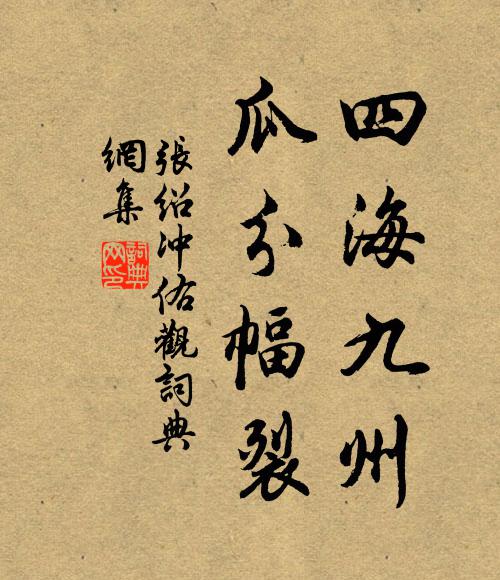 四海九州
瓜分幅裂
張紹沖佑觀詞典
網集
詞典
网印